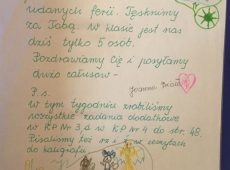 udanych ferii. Tęsknimy
za Tobą. W klasie jest nas
dziś tylko 5 osób.
Pozdrawiamy Cię i posyłamy
dużo całusów -
Joanna
P.s.
W tym tygodniu zrobiliśmy
wszystkie zadania dodatkowe
w KP Nr 3, a w KP Nr 4 do str. 48.
Pisaliśmy też
w zeszytach
do kaligrafii